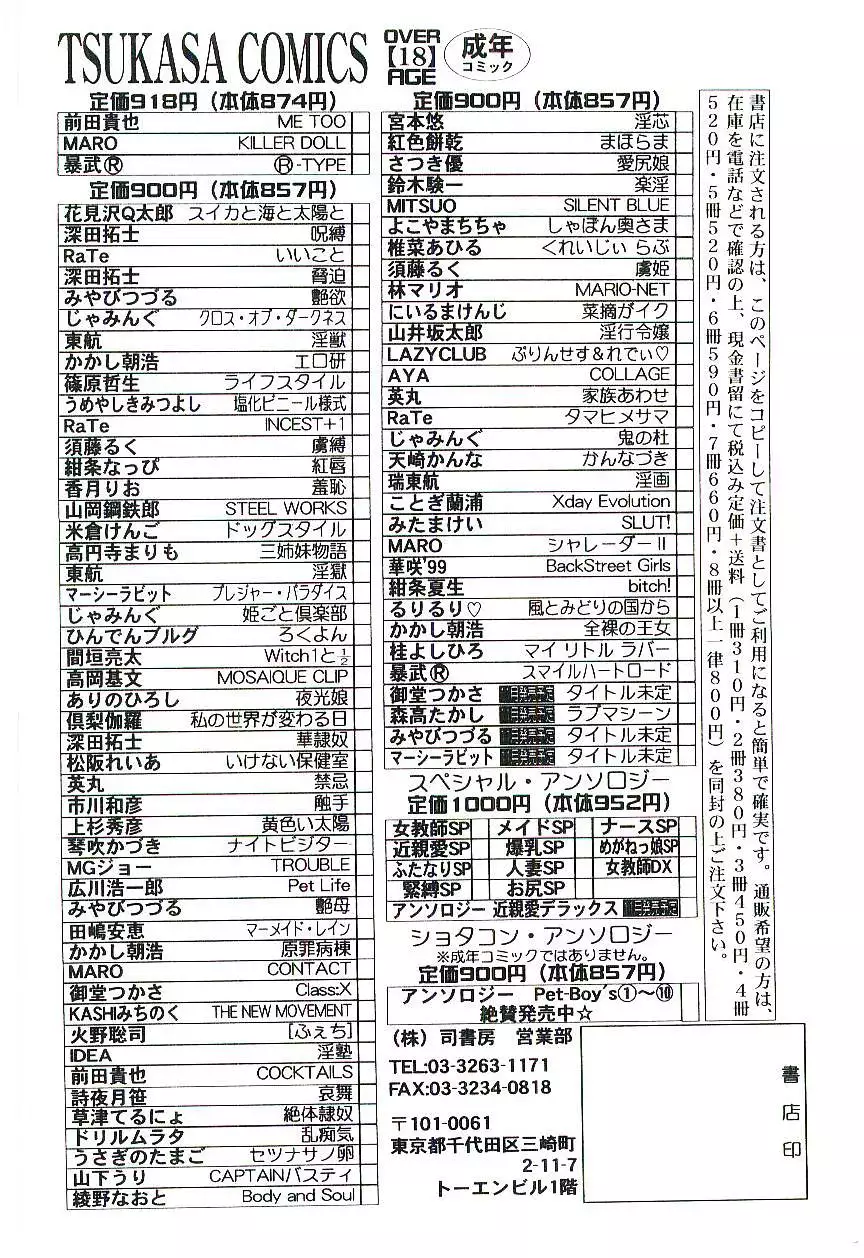 TSUKASA COMICS
OVER
【18】
AGE
成年
コミック
定価918円（本体874円）
前田貴也 ME TOO
MARO KILLER DOLL
暴武Ⓡ Ⓡ-TYPE
定価900円（本体857円）
花見沢Q太郎 スイカと海と太陽と
深田拓士 呪縛
RaTe いいこと
深田拓士 脅迫
みやびつづる 艶欲
じゃみんぐ クロス・オブ・ダークネス
東航 淫獣
かかし朝浩 エロ研
篠原哲生 ライフスタイル
うめやしきみつよし 塩化ビニール様式
RaTe INCEST+1
須藤るく 虜縛
紺条なっぴ 紅唇
香月りお 羞恥
山岡鋼鉄郎 STEEL WORKS
米倉けんご ドッグスタイル
高円寺まりも 三姉妹物語
東航 淫獄
マーシーラビット プレジャー・パラダイス
じゃみんぐ 姫ごと倶楽部
ひんでんブルグ ろくよん
間垣亮太 Witch1と½
高岡基文 MOSAIQUE CLIP
ありのひろし 夜光娘
倶梨伽羅 私の世界が変わる日
深田拓士 華隷奴
松阪れいあ いけない保健室
英丸 禁忌
市川和彦 触手
上杉秀彦 黄色い太陽
琴吹かづき ナイトビジター
MGジョー TROUBLE
広川浩一郎 Pet Life
みやびつづる 艶母
田嶋安恵 マーメイド・レイン
かかし朝浩 原罪病棟
MARO CONTACT
御堂つかさ Class:X
KASHIみちのく THE NEW MOVEMENT
火野聡司 [ふぇち]
IDEA 淫塾
前田貴也 COCKTAILS
詩夜月笹 哀舞
草津てるにょ 絶体隷奴
ドリルムラタ 乱痴気
うさぎのたまご セツナサノ卵
山下うり CAPTAINバスティ
綾野なおと Body and Soul
定価900円（本体857円）
宮本悠 淫芯
紅色餅乾 まほらま
さつき優 愛尻娘
鈴木験一 楽淫
MITSUO SILENT BLUE
よこやまちちゃ しゃぼん奥さま
椎菜あひる くれいじぃ らぶ
須藤るく 虜姫
林マリオ MARIO-NET
にいるまけんじ 菜摘がイク
山井坂太郎 淫行令嬢
LAZYCLUB ぷりんせす&れでぃ♡
AYA COLLAGE
英丸 家族あわせ
RaTe タマヒメサマ
じゃみんぐ 鬼の杜
天崎かんな かんなづき
瑞東航 淫画
ことぎ蘭浦 Xday Evolution
みたまけい SLUT!
MARO シャレーダーⅡ
華咲'99 BackStreet Girls
紺条夏生 bitch!
るりるり♡ 風とみどりの国から
かかし朝浩 全裸の王女
桂よしひろ マイ リトル ラバー
暴武Ⓡ スマイルハートロード
御堂つかさ タイトル未定
森高たかし ラブマシーン
みやびつづる タイトル未定
マーシーラビット タイトル未定
スペシャル・アンソロジー
定価1000円（本体952円）
女教師SP メイドSP ナースSP
近親愛SP 爆乳SP めがねっ娘SP
ふたなりSP 人妻SP 女教師DX
緊縛SP お尻SP
アンソロジー 近親愛デラックス
ショタコン・アンソロジー
※成年コミックではありません。
定価900円（本体857円）
アンソロジー Pet-Boy's①〜⑩
絶賛発売中☆
（株）司書房 営業部
TEL:03-3263-1171
FAX:03-3234-0818
〒101-0061
東京都千代田区三崎町
2-11-7
トーエンビル1階
書店に注文される方は、このページをコピーして注文書としてご利用になると簡単で確実です。通販希望の方は、
在庫を電話などで確認の上、現金書留にて税込み定価＋送料（1冊310円・2冊380円・3冊450円・4冊
520円・5冊520円・6冊590円・7冊660円・8冊以上一律800円）を同封の上ご注文下さい。
書店印